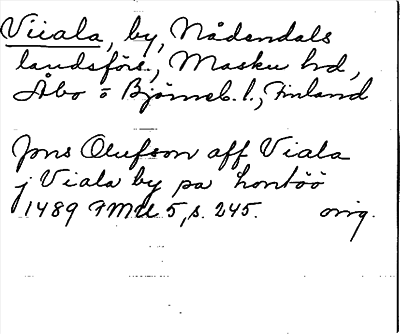 Viiala, by, Nådendals
landsförs., Masku hd,
Åbo o Björneb. l., Finland
Jons Olufson aff Viala
j Viala by pa lontöö
1489 FMU 5, s. 245. orig.